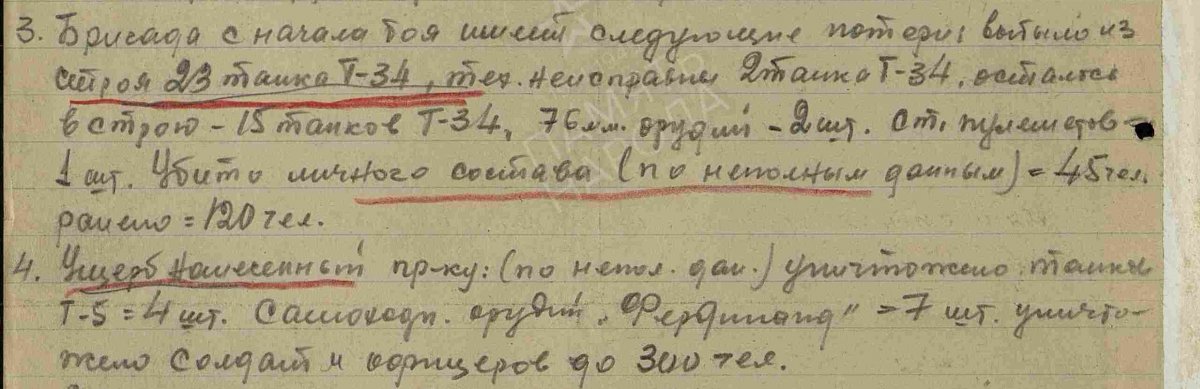 3. Бригада с начала боя имеет следующие потери: выбыло из
строя 23 танка Т-34, тех. неисправны 2 танка Т-34, осталось
в строю - 15 танков Т-34, 76 м.м. орудий - 2 шт. ст. пулеметов -
1 шт. Убито личного состава (по неполным данным) = 45 чел.
ранено = 120 чел.
4. Ущерб нанесенный пр-ку: (по непол. дан.) уничтожено танков
Т-5 = 4 шт. Самоходн. орудий "Фердинанд" = 7 шт. уничто-
жено солдат и офицеров до 300 чел.
ПАМЯТЬ
НАРОДА